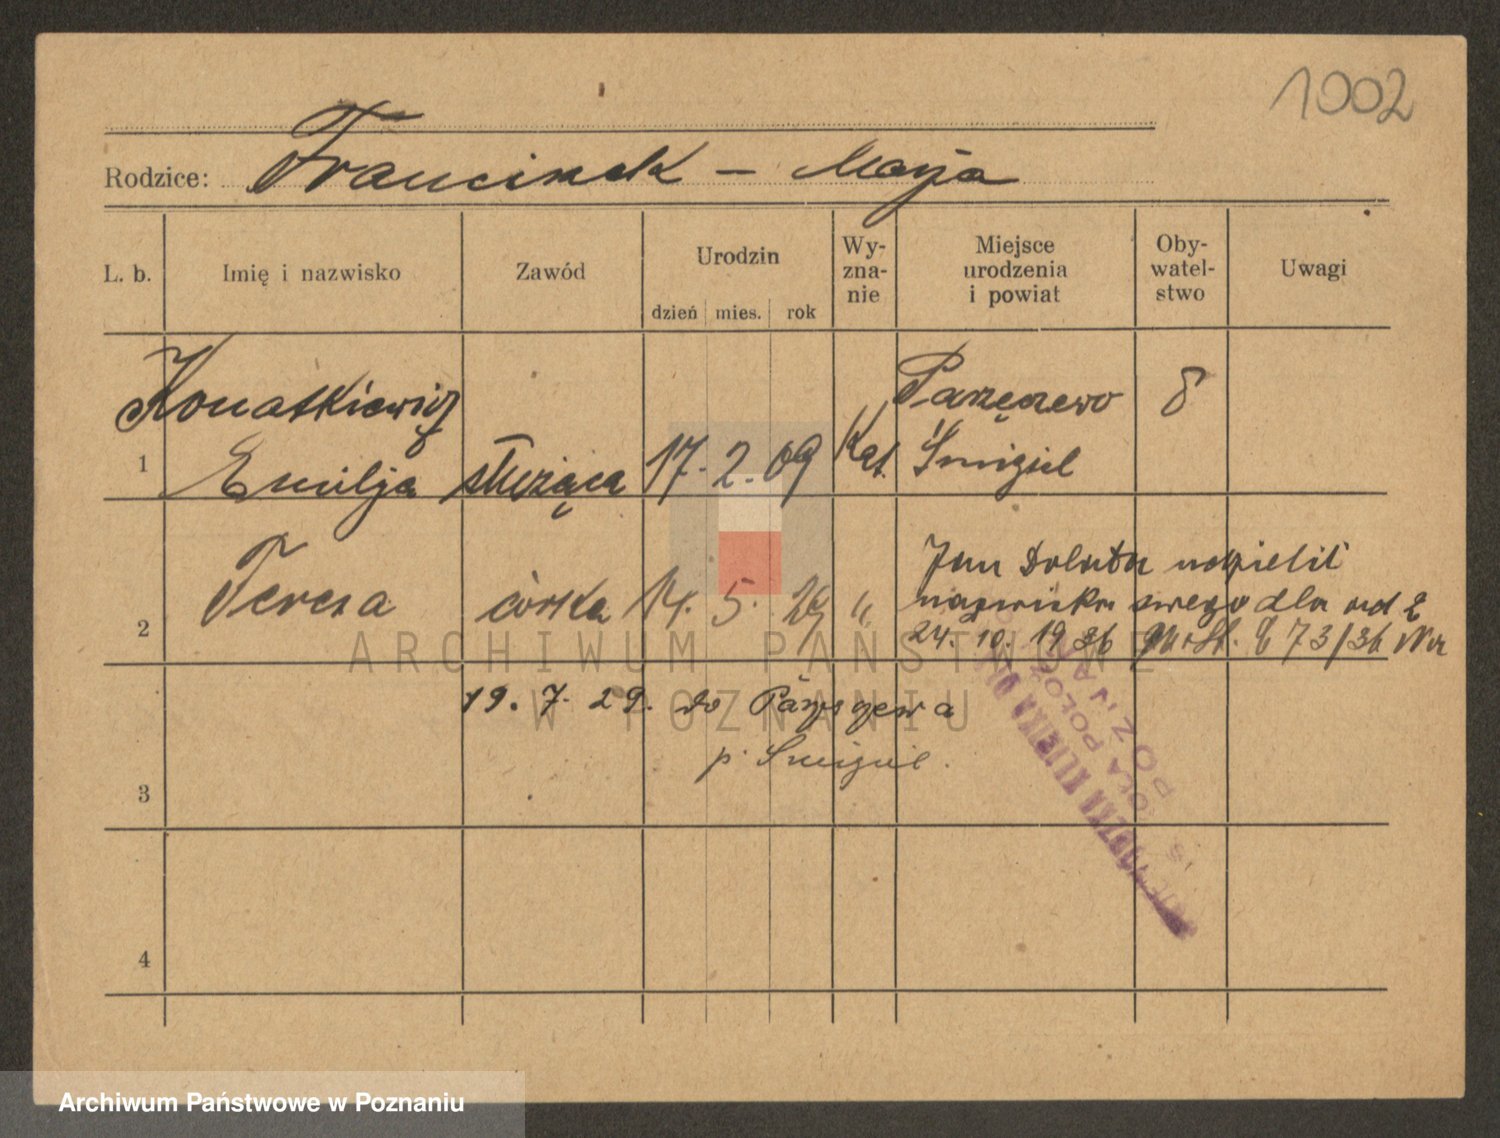 1002
Rodzice: Franciszek – Marja
L. b. Imię i nazwisko Zawód Urodzin Wy-zna-nie Miejsce urodzenia i powiat Oby-watel-stwo Uwagi
dzień mies. rok
Konatkiewicz Parzęczewo
1 Emilja służąca 17. 2. 09 Kat. Śmigiel
Jan Dolata udzielił
2 Teresa córka 14. 5. 29 " nazwiska swego dla
24. 10. 1936 73/36
19. 7. 29. do
p. Śmigiel.
3
4
POZNAŃ
ARCHIWUM PAŃSTWOWE
W POZNANIU
Archiwum Państwowe w Poznaniu